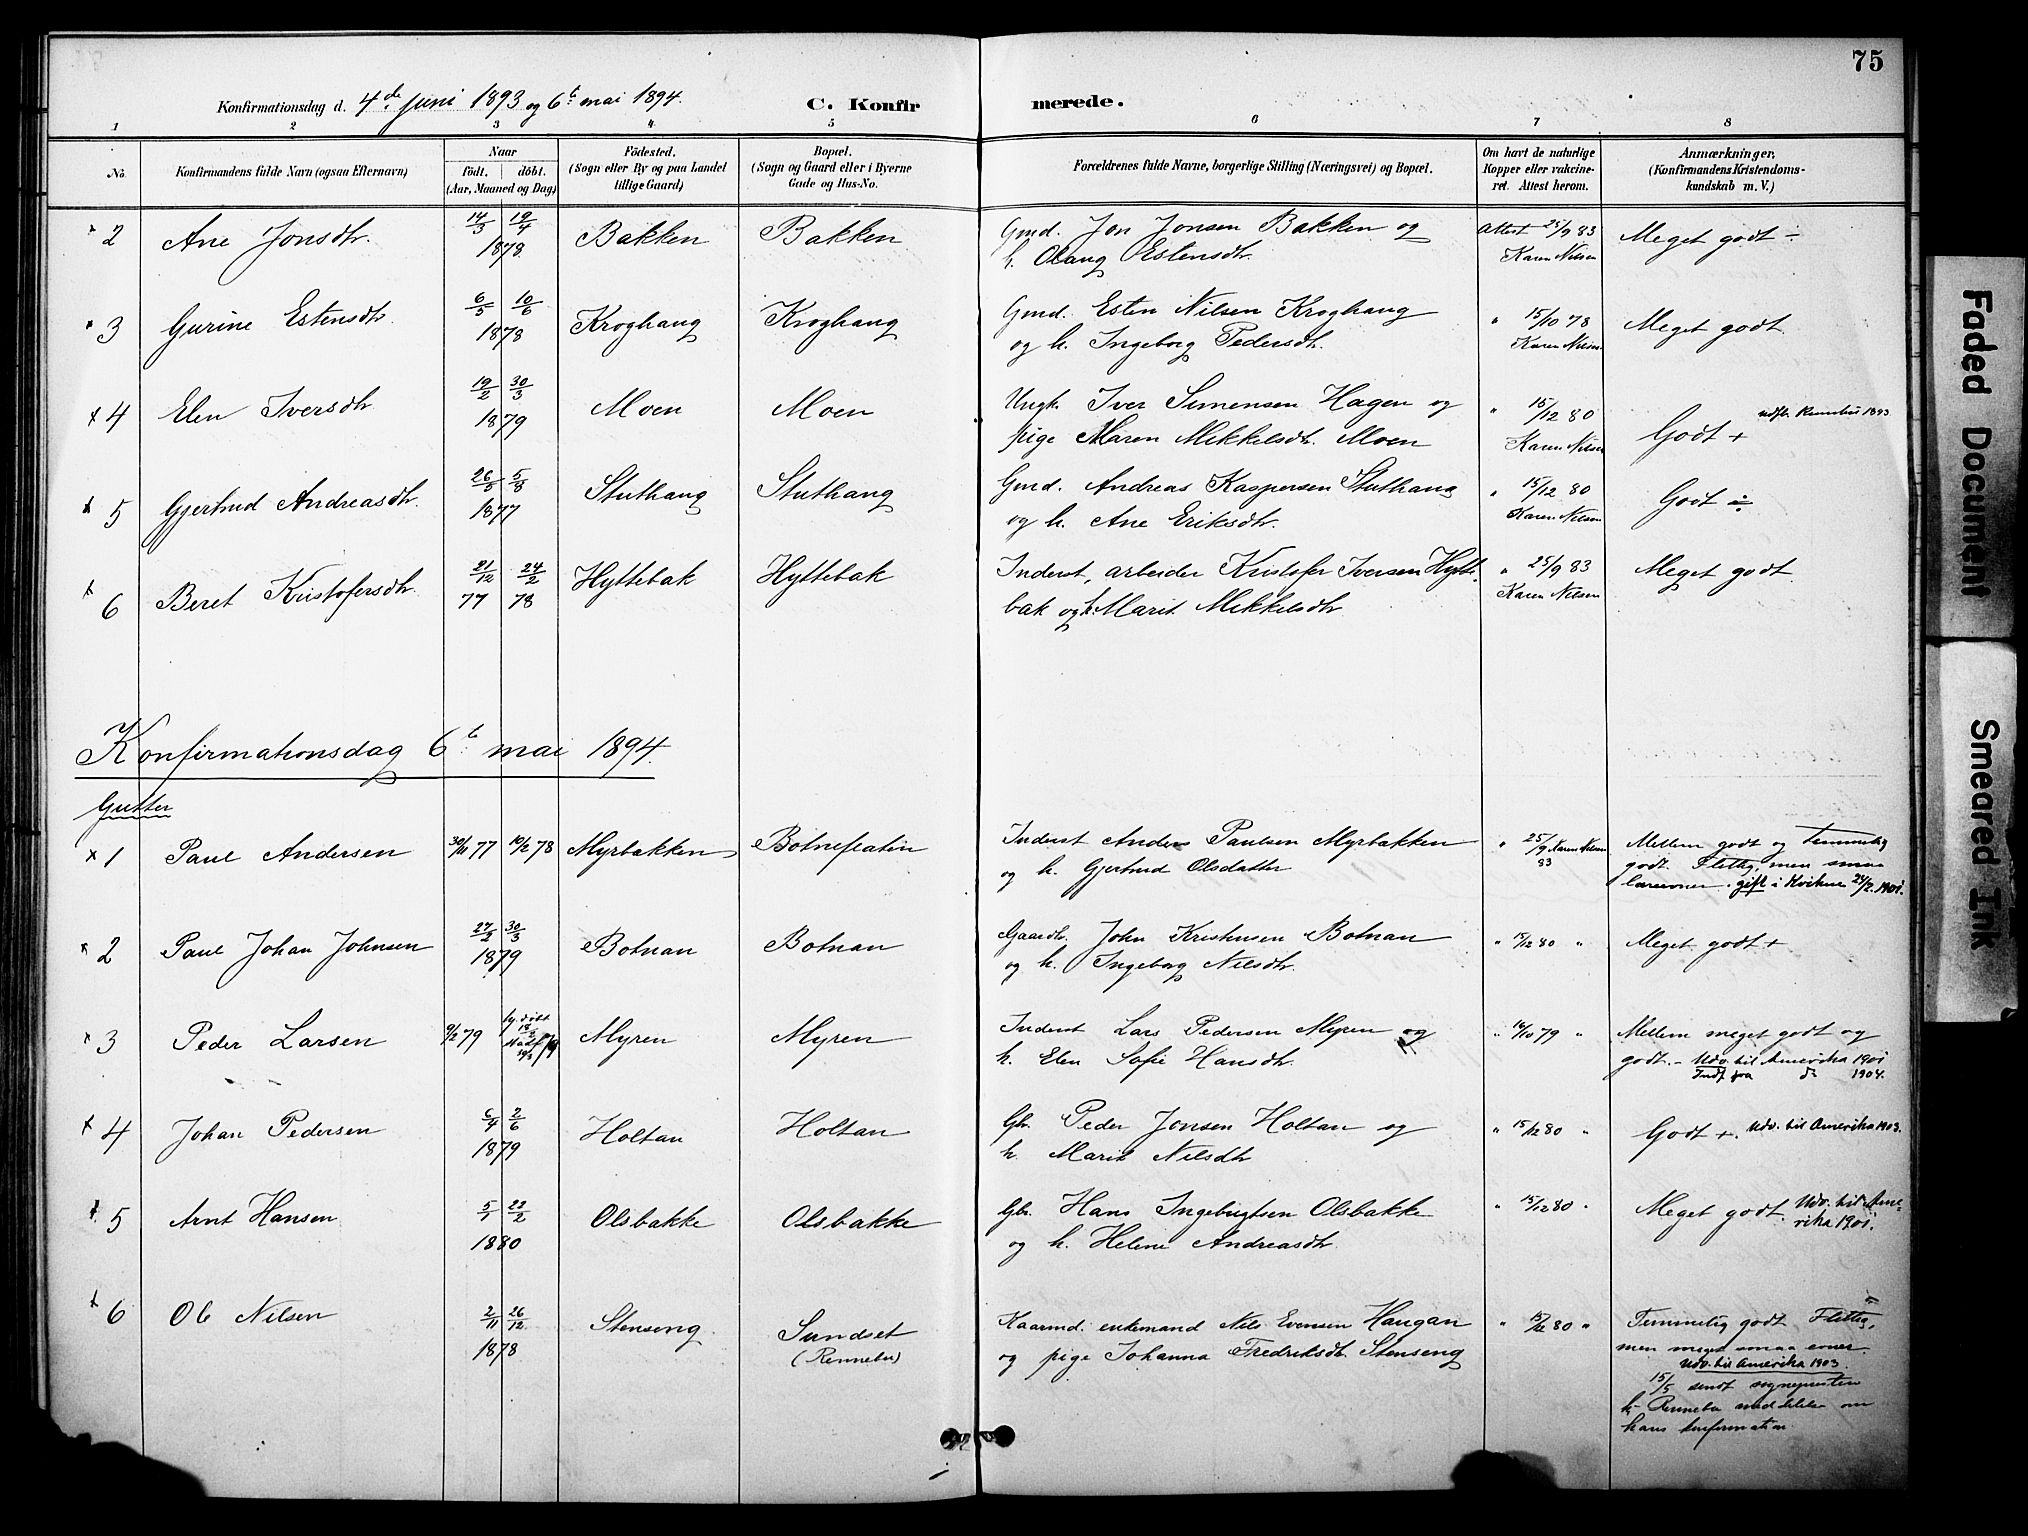 75
Konfirmationsdag d. 4de juni 1893 og 6t mai 1894.
C. Konfirmerede.
1 2 3 4 5 6 7 8
No. Konfirmandens fulde Navn (ogsaa Efternavn) Naar födt. döbt. (Aar, Maaned og Dag) Födested. (Sogn eller By og paa Landet tillige Gaard) Bopæl. (Sogn og Gaard eller i Byerne Gade og Hus-No. Forældrenes fulde Navne, borgerlige Stilling (Næringsvei) og Bopæl. Om havt de naturlige Kopper eller vakcineret. Attest herom. Anmærkninger, (Konfirmandens Kristendomskundskab m. V.)
2 Ane Jonsdtr. 14/3 19/4 1878 Bakken Bakken Gmd. Jon Jonsen Bakken og Attest 25/9 83 Meget godt ÷
h. Olaug Estensdtr. Karen Nilsen
3 Gurine Estensdtr. 6/5 10/6 1878 Kroghaug Kroghaug Gmd. Esten Nilsen Kroghaug " 15/10 78 Meget godt
og h. Ingeborg Pedersdtr. Karen Nilsen
x 4 Elen Iversdtr 19/2 30/3 1879 Moen Moen Ungk. Iver Simensen Hagen og " 15/12 80 Godt + udfl. Rennebu 1893
pige Maren Mikkelsdtr. Moen Karen Nilsen
x 5 Gjertrud Andreasdtr. 26/5 5/8 1877 Stuthaug Stuthaug Gmd. Andreas Kaspersen Stuthaug " 15/12 80 Godt ÷
og h. Ane Eriksdtr. Karen Nilsen
6 Beret Kristofersdtr. 21/12 77 24/2 78 Hyttebak Hyttebak Inderst, arbeider Kristofer Iversen Hytte- " 25/9 83 Meget godt
bak og h. Marit Mikkelsdtr Karen Nilsen
Konfirmationsdag 6t mai 1894.
Gutter
x 1 Paul Andersen 30/11 77 10/2 78 Myrbakken Inderst Anders Paulsen Myrbakken " 25/9 83 Karen Nilsen Mellem godt og temmelig
og h. Gjertrud Olsdatter godt. Flittig, men smaa
læreevner. gift i Kvikne 1901.
2 Paul Johan Johnsen 27/2 30/3 1879 Botnan Botnan Gaardbr. John Kristensen Botnan " 15/12 80 " Meget godt +
og h. Ingeborg Nilsdtr.
3 Peder Larsen 9/2 79 Myren Myren Inderst Lars Pedersen Myren og " 16/10 79 " Mellem meget godt og
h. Elen Sofie Hansdtr. godt. – Udv. til Amerika 1901
Indf fra do 1904.
x 4 Johan Pedersen 6/4 2/6 1879 Holtan Holtan Gbr. Peder Jonsen Holtan og " 15/12 80 " Godt +. Udv. til Amerika 1903.
h. Marit Nilsdtr
5 Arnt Hansen 5/1 22/2 1880 Olsbakke Olsbakke Gbr. Hans Ingebrigtsen Olsbakke " 15/12 80 " Meget godt. Udv. til Ame-
og h. Helene Andreasdtr rika 1901.
6 Ole Nilsen 2/11 26/12 1878 Stenseng Sundset (Rennebu) Kaarmd. enkemand Nils Evensen Haugan " 15/12 80 " Temmelig godt. Flittig,
og pige Johanna Fredriksdtr. Stenseng men meget smaa evner.
Udv. til Amerika 1903.
15/5 sendt sognepresten
t. Rennebu meddelelse om
hans konfirmation.
Faded Document
Smeared Ink